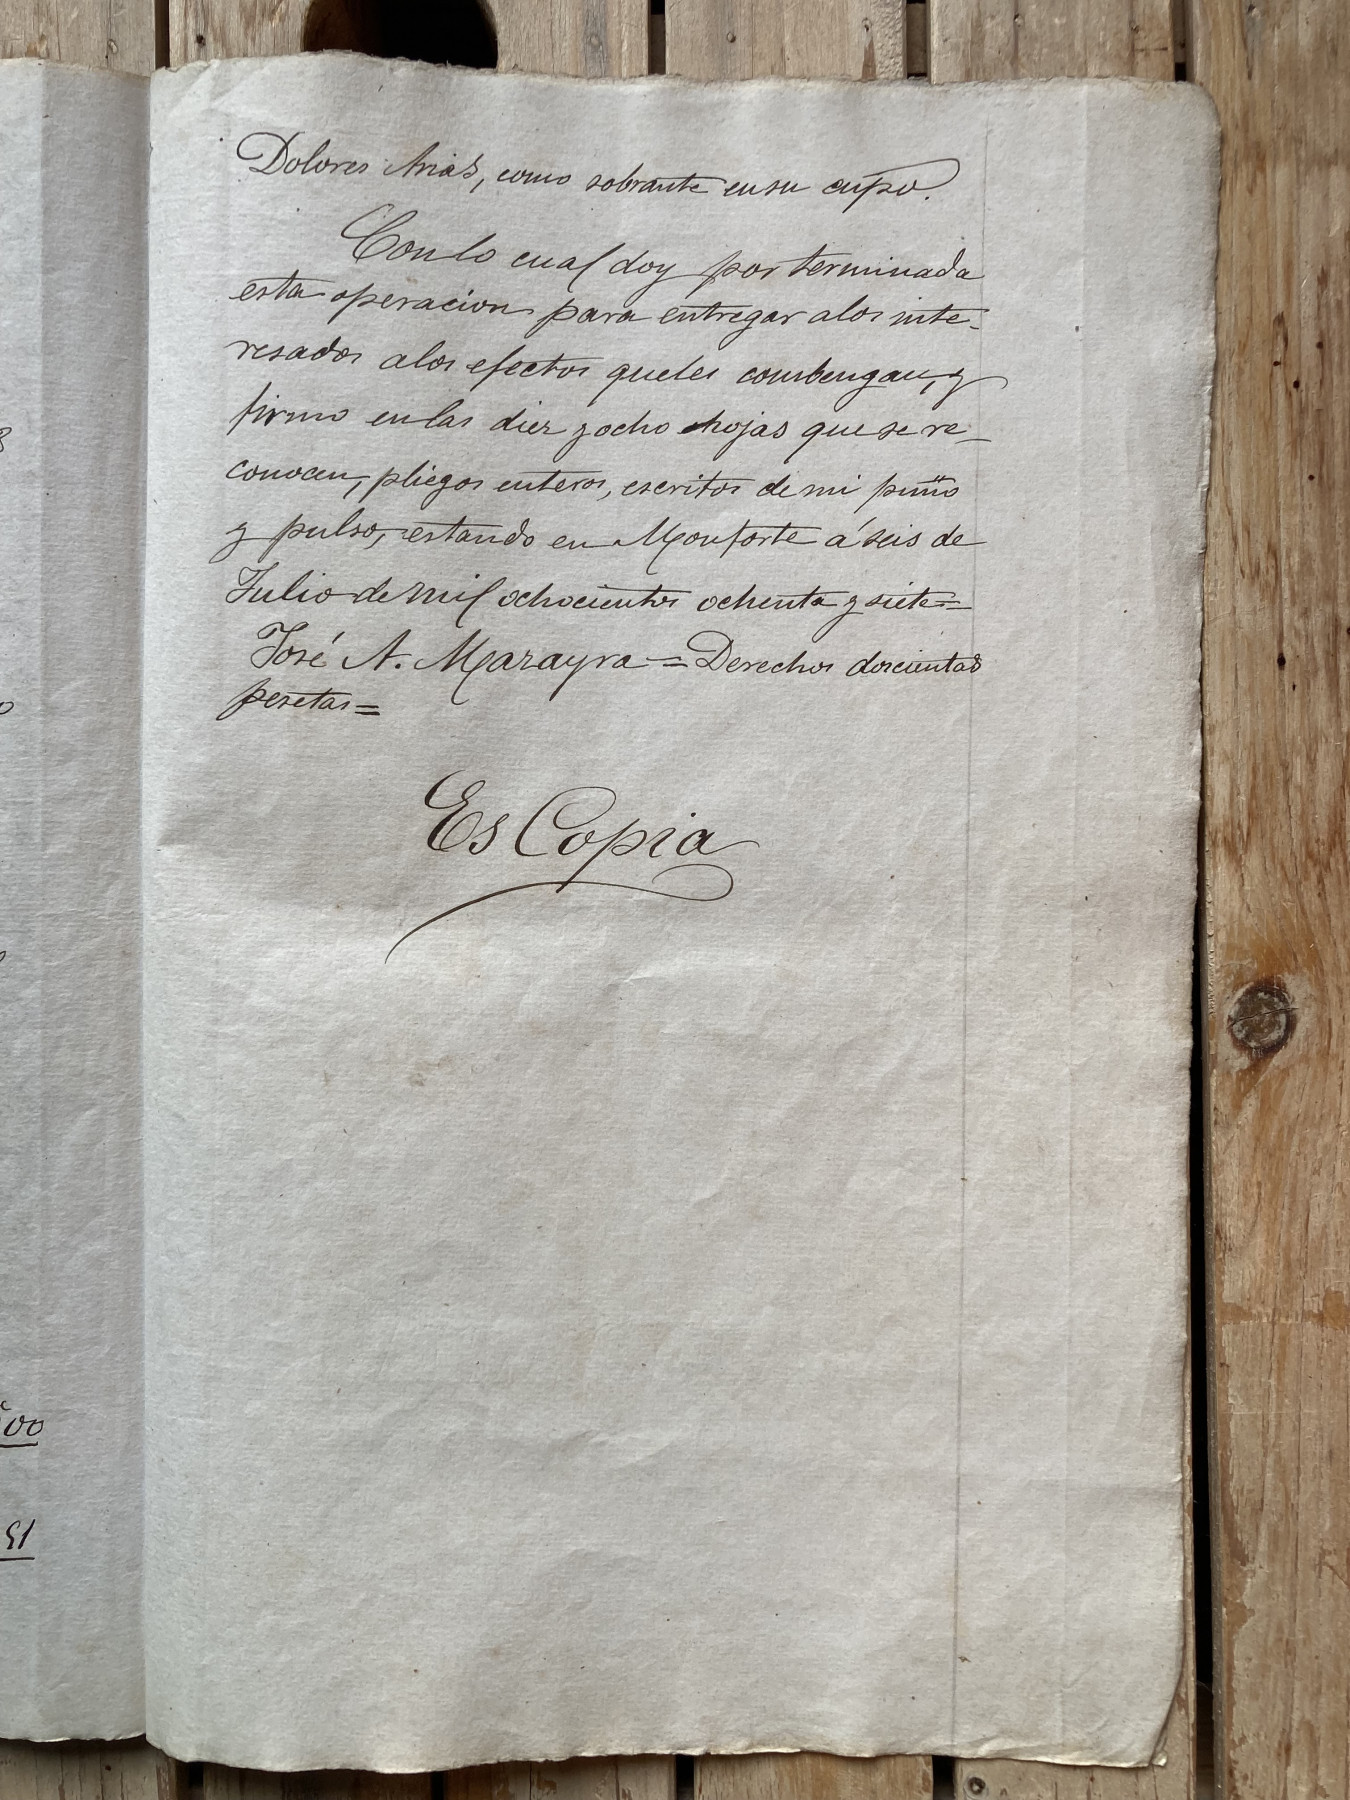 Dolores Arias, como sobrante en su cupo.
Con lo cual doy por terminada
esta operacion para entregar a los inte-
resados a los efectos que les combengan, y
firmo en las diez y ocho hojas que se re-
conocen, pliegos enteros, escritos de mi puño
y pulso, estando en Monforte á seis de
Julio de mil ochocientos ochenta y siete=
José A. Mazayra = Derechos doscientas
pesetas=
Es Copia
00
51